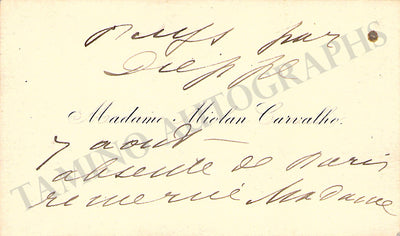 Puys par
Dieppe
Madame Miolan Carvalho.
7 aout
absente de Paris
remercie Madame
TAMINO AUTOGRAPHS